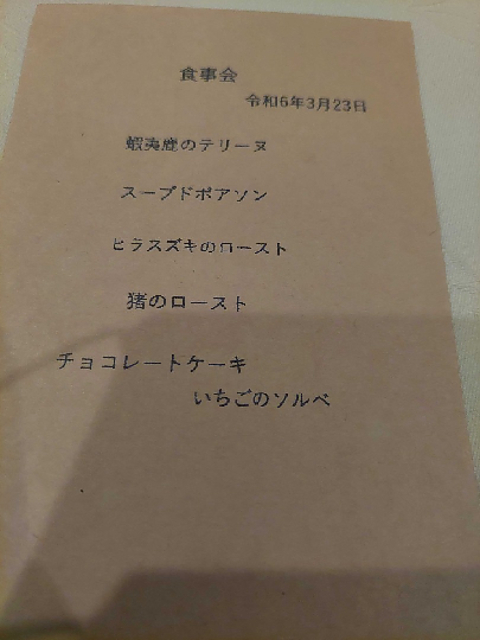 食事会
令和6年3月23日
蝦夷鹿のテリーヌ
スープドポアソン
ヒラスズキのロースト
猪のロースト
チョコレートケーキ
いちごのソルベ